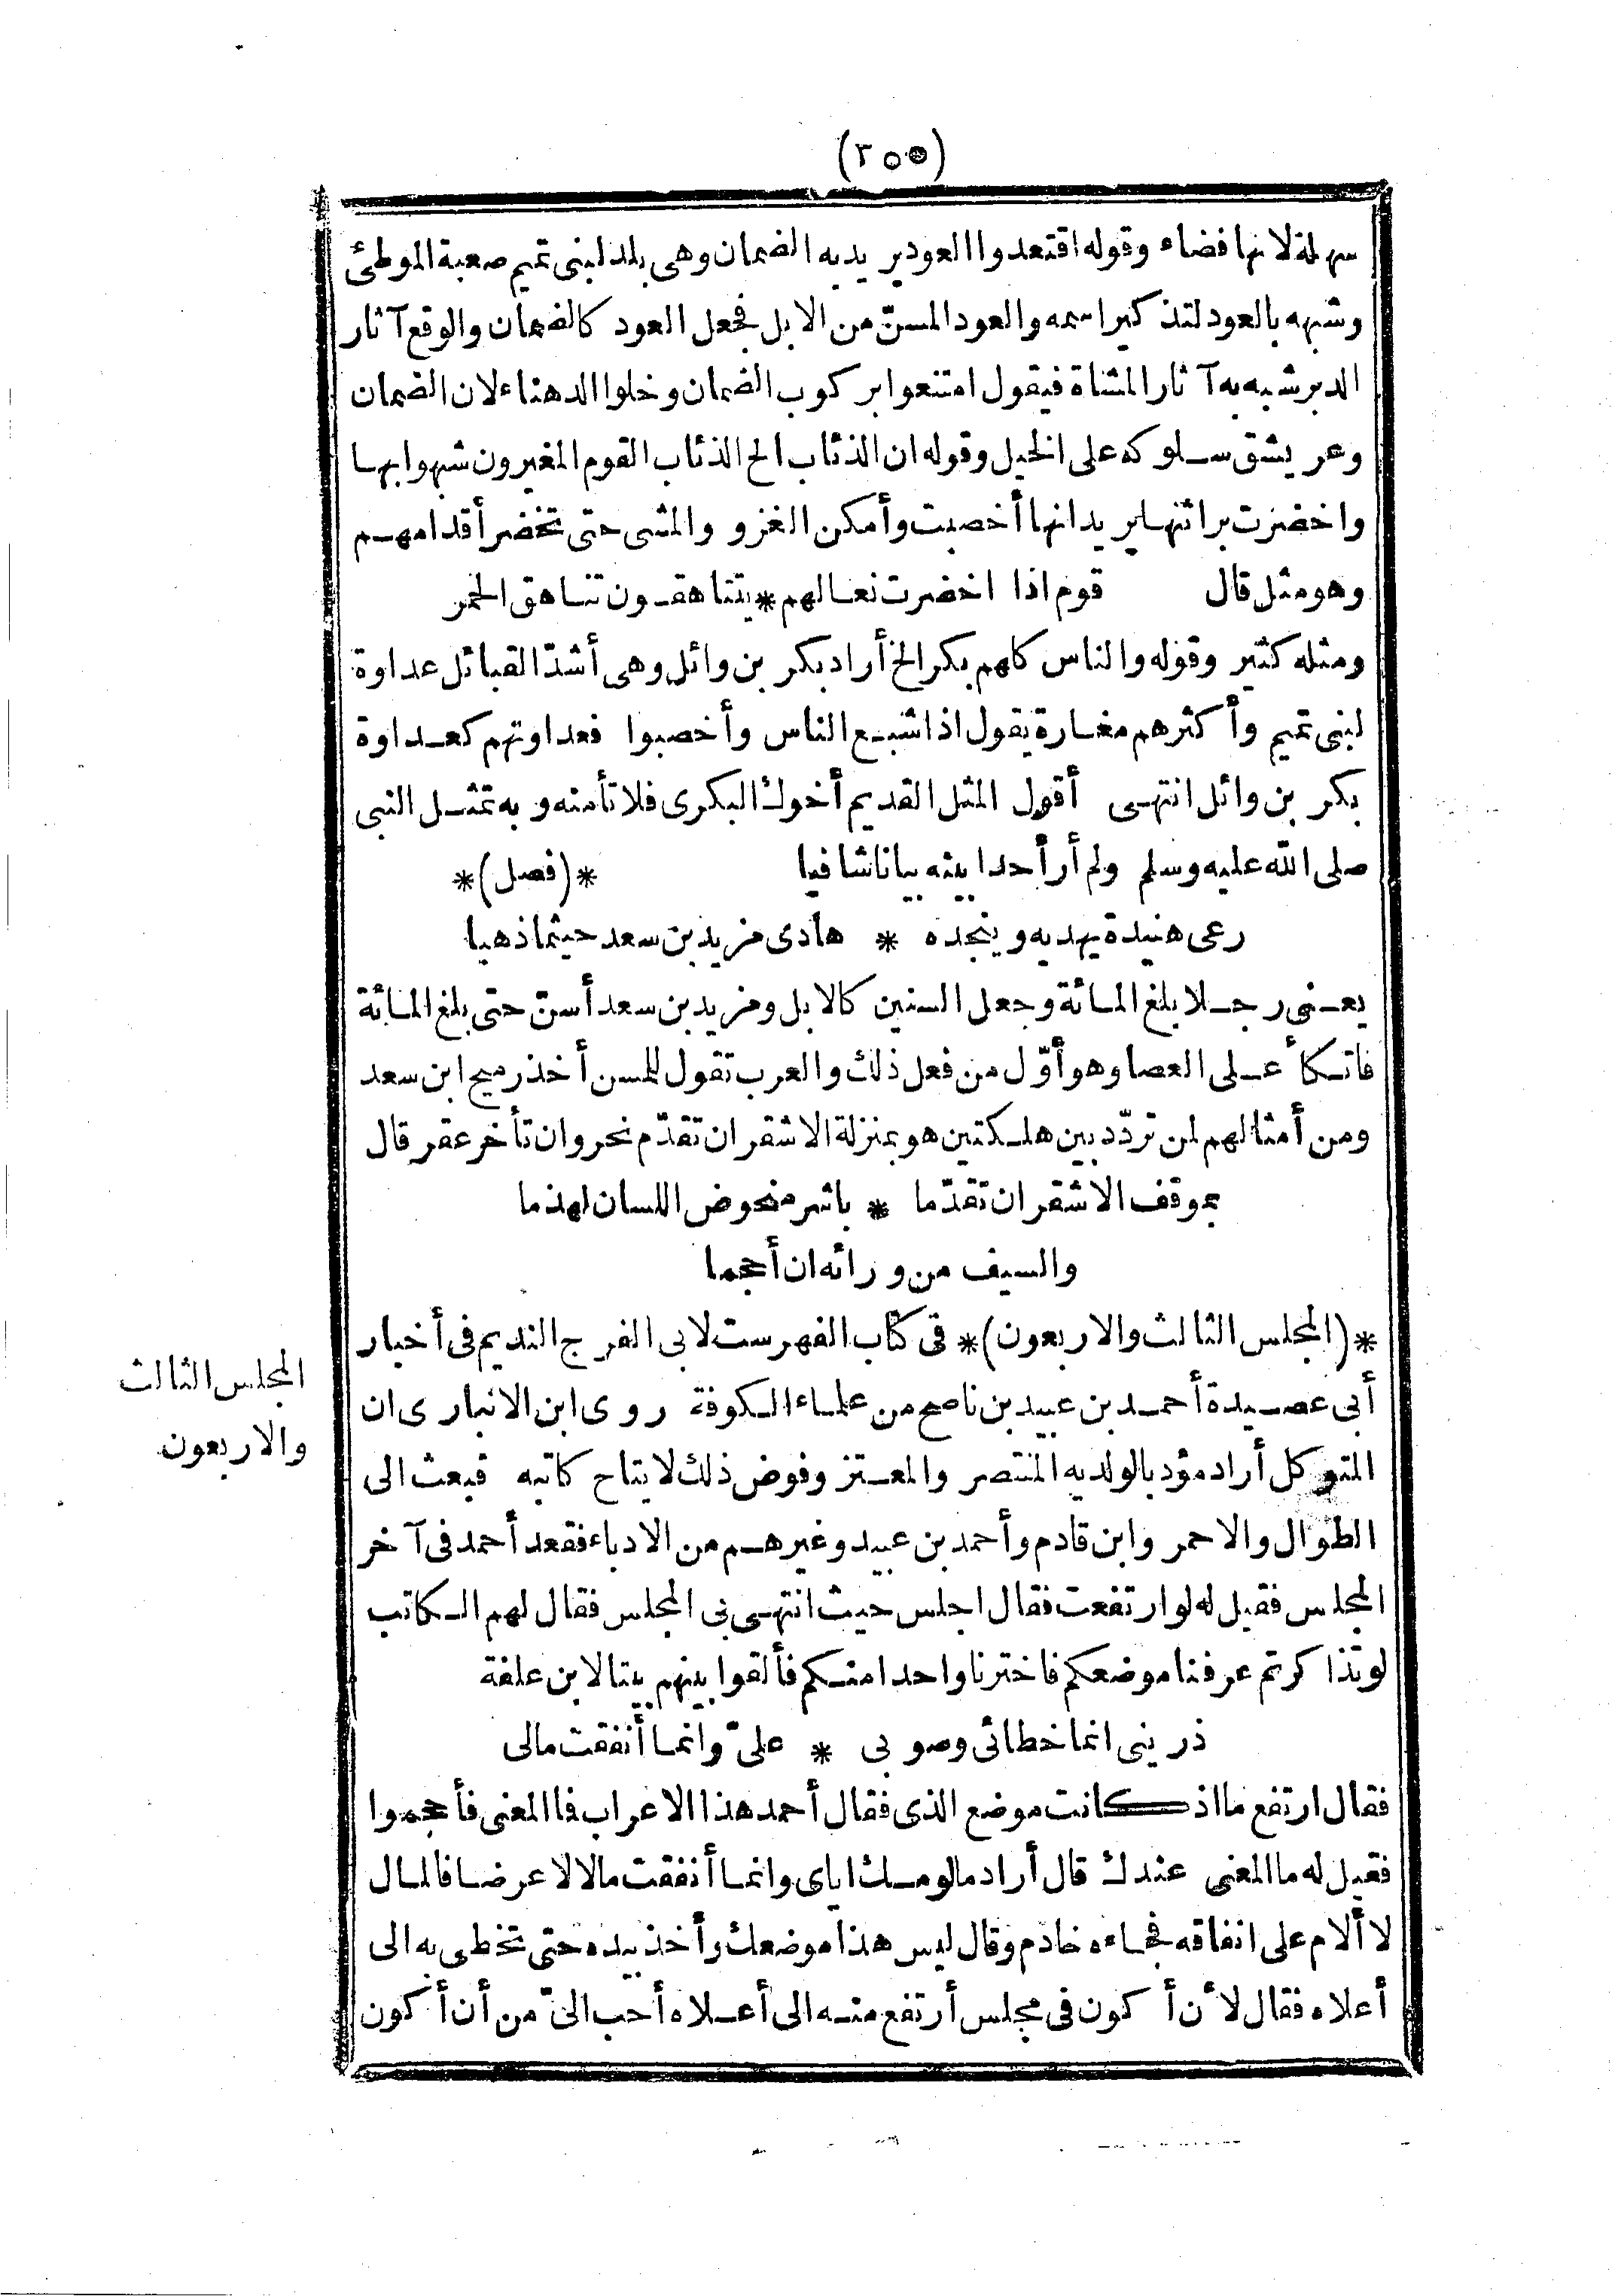 (٢٥٥)
سهلة لانها فضاء وقوله اقتعدوا العود يريد به الضمان وهى بلد لبنى تميم صعبة الموطئ
وشبهه بالعود لتذكير اسمه والعود المسنّ من الابل فجعل العود كالضمان والوقع آثار
الدبر شبه به آثار المشاة فيقول امتنعوا بركوب الضمان وخلوا الدهناء لان الضمان
وعر يشق سلوكه على الخيل وقوله ان الذئاب الخ الذئاب القوم المغيرون شبهوا بها
واخضرت براثنها يريد انها أخصبت وأمكن الغزو والمشى حتى تخضر أقدامهم
وهو مثل قال قوم اذا اخضرت نعالهم * يتناهقون تناهق الحمر
ومثله كثير وقوله والناس كلهم بكر الخ أراد بكر بن وائل وهى أشدّ القبائل عداوة
لبنى تميم وأكثرهم مغارة يقول اذا شبع الناس وأخصبوا فعداوتهم كعداوة
بكر بن وائل انتهى أقول المثل القديم أخوك البكرى فلا تأمنه وبه تمثل النبى
صلى الله عليه وسلم ولم أر أحدا بينه بيانا شافيا *(فصل)*
رعى هنيدة يهديه وينجده * هادى مزيد بن سعد حيثما ذهبا
يعنى رجلا بلغ المائة وجعل السنين كالابل ومزيد بن سعد أسنّ حتى بلغ المائة
فاتكأ على العصا وهو أوّل من فعل ذلك والعرب تقول للمسن أخذ رميح ابن سعد
ومن أمثالهم لمن تردّد بين هلكتين هو بمنزلة الاشقر ان تقدّم نحر وان تأخر عقر قال
بموقف الاشقر ان تقدّما * باشر منحوض اللسان لهذما
والسيف من ورائه ان أحجما
*(المجلس الثالث والاربعون)* فى كتاب الفهرست لابى الفرج النديم فى أخبار
المجلس الثالث
والاربعون
أبى عصيدة أحمد بن عبيد بن ناصح من علماء الكوفة روى ابن الانبارى ان
المتوكل أراد مؤدبا لولديه المنتصر والمعتز وفوض ذلك لايتاح كاتبه فبعث الى
الطوال والاحمر وابن قادم وأحمد بن عبيد وغيرهم من الادباء فقعد أحمد فى آخر
المجلس فقيل له لو ارتفعت فقال اجلس حيث انتهى بى المجلس فقال لهم الكاتب
لو تذاكرتم عرفنا موضعكم فاخترنا واحدا منكم فألقوا بينهم بيتا لابن علفة
ذرينى انما خطائى وصوبى * علىّ وانما أنفقت مالى
فقال ارتفع ما اذ كانت موضع الذى فقال أحمد هذا الاعراب فا المعنى فأحجموا
فقيل له ما المعنى عندك قال أراد ما لومك اياى وانما أنفقت مالا لا عرضا فالمال
لا ألام على انفاقه فجاءه خادم وقال ليس هذا موضعك وأخذ بيده حتى تخطى به الى
أعلاه فقال لأن أكون فى مجلس أرتفع منه الى أعلاه أحب الىّ من أن أكون